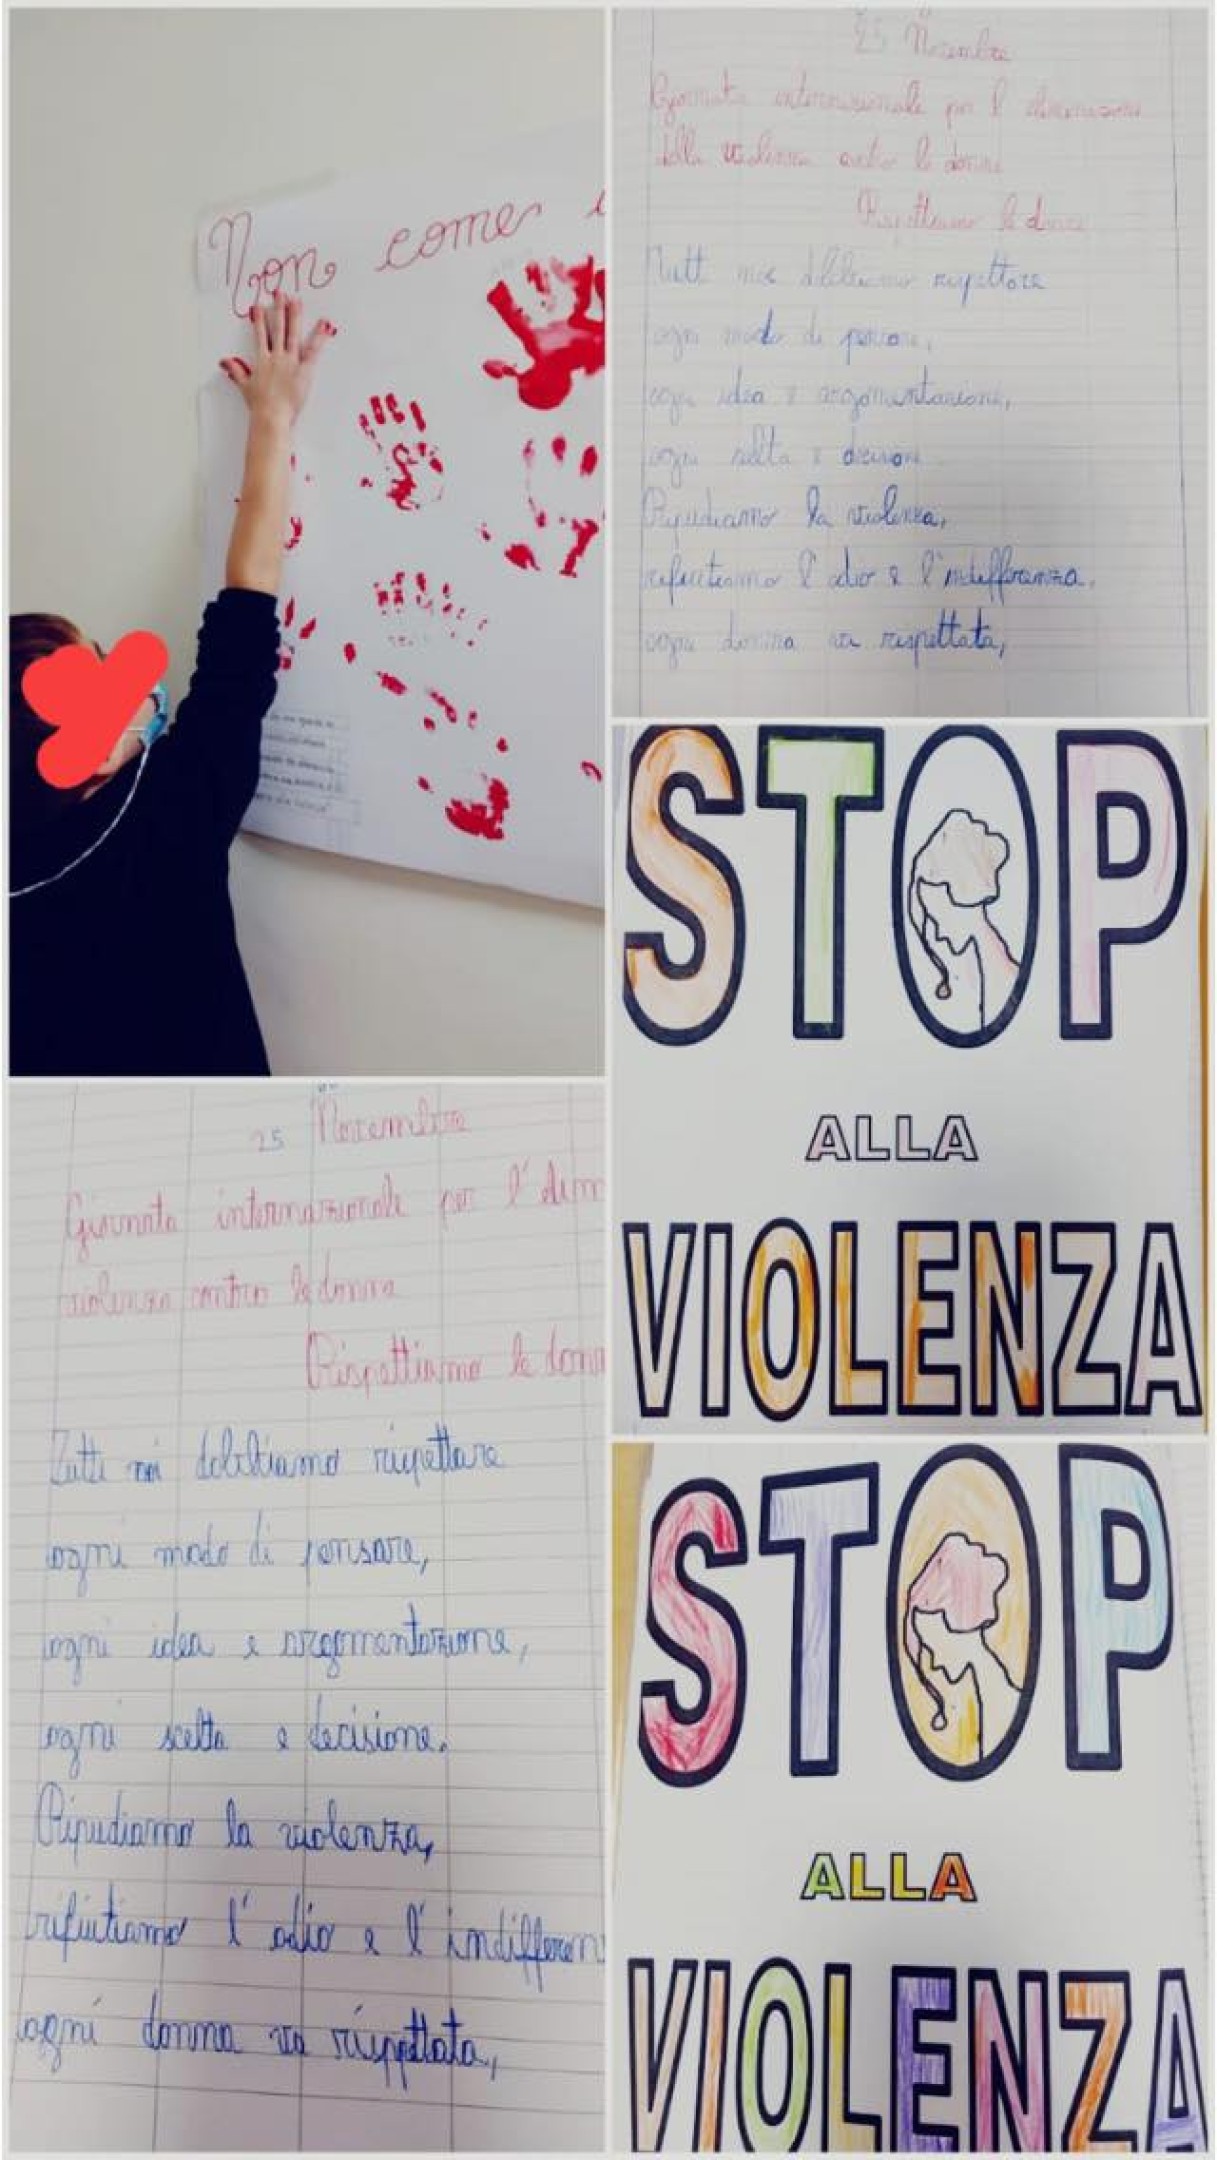 Non come
25 Novembre
Giornata internazionale per l'
della violenza contro le donne
Rispettiamo le donne
Tutti noi dobbiamo rispettare
ogni modo di pensare,
ogni idea e argomentazione,
ogni scelta e decisione
Ripudiamo la violenza,
rifiutiamo l'odio e l'indifferenza,
ogni donna va rispettata,
STOP
ALLA
VIOLENZA
25 Novembre
Giornata internazionale per l'elim
violenza contro le donne
Rispettiamo le donn
Tutti noi dobbiamo rispettare
ogni modo di pensare,
ogni idea e argomentazione,
ogni scelta e decisione.
Ripudiamo la violenza,
rifiutiamo l'odio e l'indifferen
ogni donna va rispettata,
STOP
ALLA
VIOLENZA